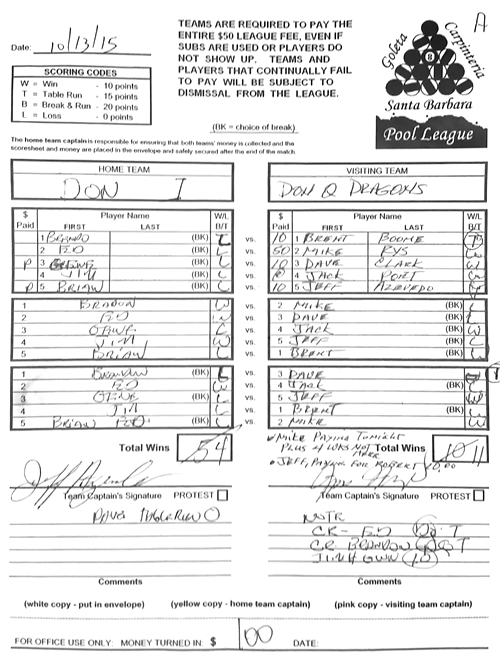 A
TEAMS ARE REQUIRED TO PAY THE
ENTIRE $50 LEAGUE FEE, EVEN IF
SUBS ARE USED OR PLAYERS DO
NOT SHOW UP. TEAMS AND
PLAYERS THAT CONTINUALLY FAIL
TO PAY WILL BE SUBJECT TO
DISMISSAL FROM THE LEAGUE.
Date: 10/13/15
SCORING CODES
W = Win - 10 points
T = Table Run - 15 points
B = Break & Run - 20 points
L = Loss - 0 points
Goleta Carpinteria
8
Santa Barbara
Pool League
(BK = choice of break)
The home team captain is responsible for ensuring that both teams' money is collected and the
scoresheet and money are placed in the envelope and safely secured after the end of the match.
HOME TEAM VISITING TEAM
DON I DON Q DRAGONS
$ Paid Player Name FIRST LAST W/L B/T $ Paid Player Name FIRST LAST W/L B/T
1 (BK) vs. 10 1 BRENT BOONE
2 ED vs. 50 2 MIKE RYS
P 3 (BK) L vs. 10 3 DAVE CLARK W
4 JIM L vs. 4 JACK PORT
P 5 BRIAN (BK) L vs. 10 5 JEFF AZEVEDO
1 BRANDON W vs. 2 MIKE (BK) L
2 ED vs. 3 DAVE
3 vs. 4 JACK (BK)
4 JIM W vs. 5 JEFF L
5 BRIAN vs. 1 BRENT (BK)
1 BRANDON (BK) L vs. 3 DAVE
2 ED W vs. 4 JACK L
3 (BK) L vs. 5 JEFF W
4 JIM L vs. 1 BRENT
5 BRIAN (BK) L vs. 2 MIKE W
Total Wins 4 Total Wins 11
MIKE PAYING TONIGHT
JEFF, PAYING FOR ROBERT 10.00
Team Captain's Signature PROTEST Team Captain's Signature PROTEST
DAVE
CR- ED T
CR BRANDON T
Comments Comments
(white copy - put in envelope) (yellow copy - home team captain) (pink copy - visiting team captain)
FOR OFFICE USE ONLY: MONEY TURNED IN: $ 100 DATE: